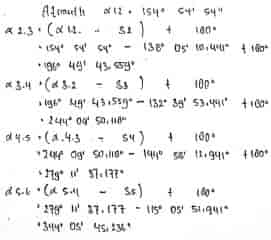 Azimuth α 12 = 154° 54' 54"
α 2.3 = (α 12 - S2) + 180°
= 154° 54' 54" - 138° 05' 10,441" + 180°
= 196° 49' 43,559"
α 3.4 = (α 3.2 - S3) + 180°
= 196° 49' 43,559" - 132° 39' 53,441" + 180°
= 244° 09' 50,118"
α 4.5 = (α 4.3 - S4) + 180°
= 244° 09' 50,118" - 144° 58' 12,941" + 180°
= 279° 11' 37,177"
α 5.6 = (α 5.4 - S5) + 180°
= 279° 11' 37,177 - 115° 05' 51,941"
= 344° 05' 45,236"